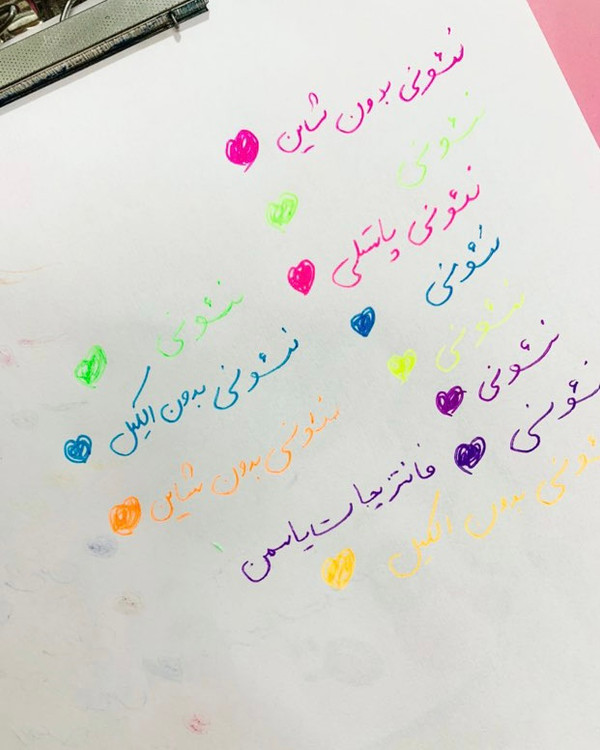 نئونی بدون شاین
نئونی
نئونی پاستلی
نئونی
نئونی
نئونی
نئونی
نئونی
نئونی بدون اکلیل
نئونی بدون شاین
نئونی بدون اکلیل
فانتزیجات یاسمن